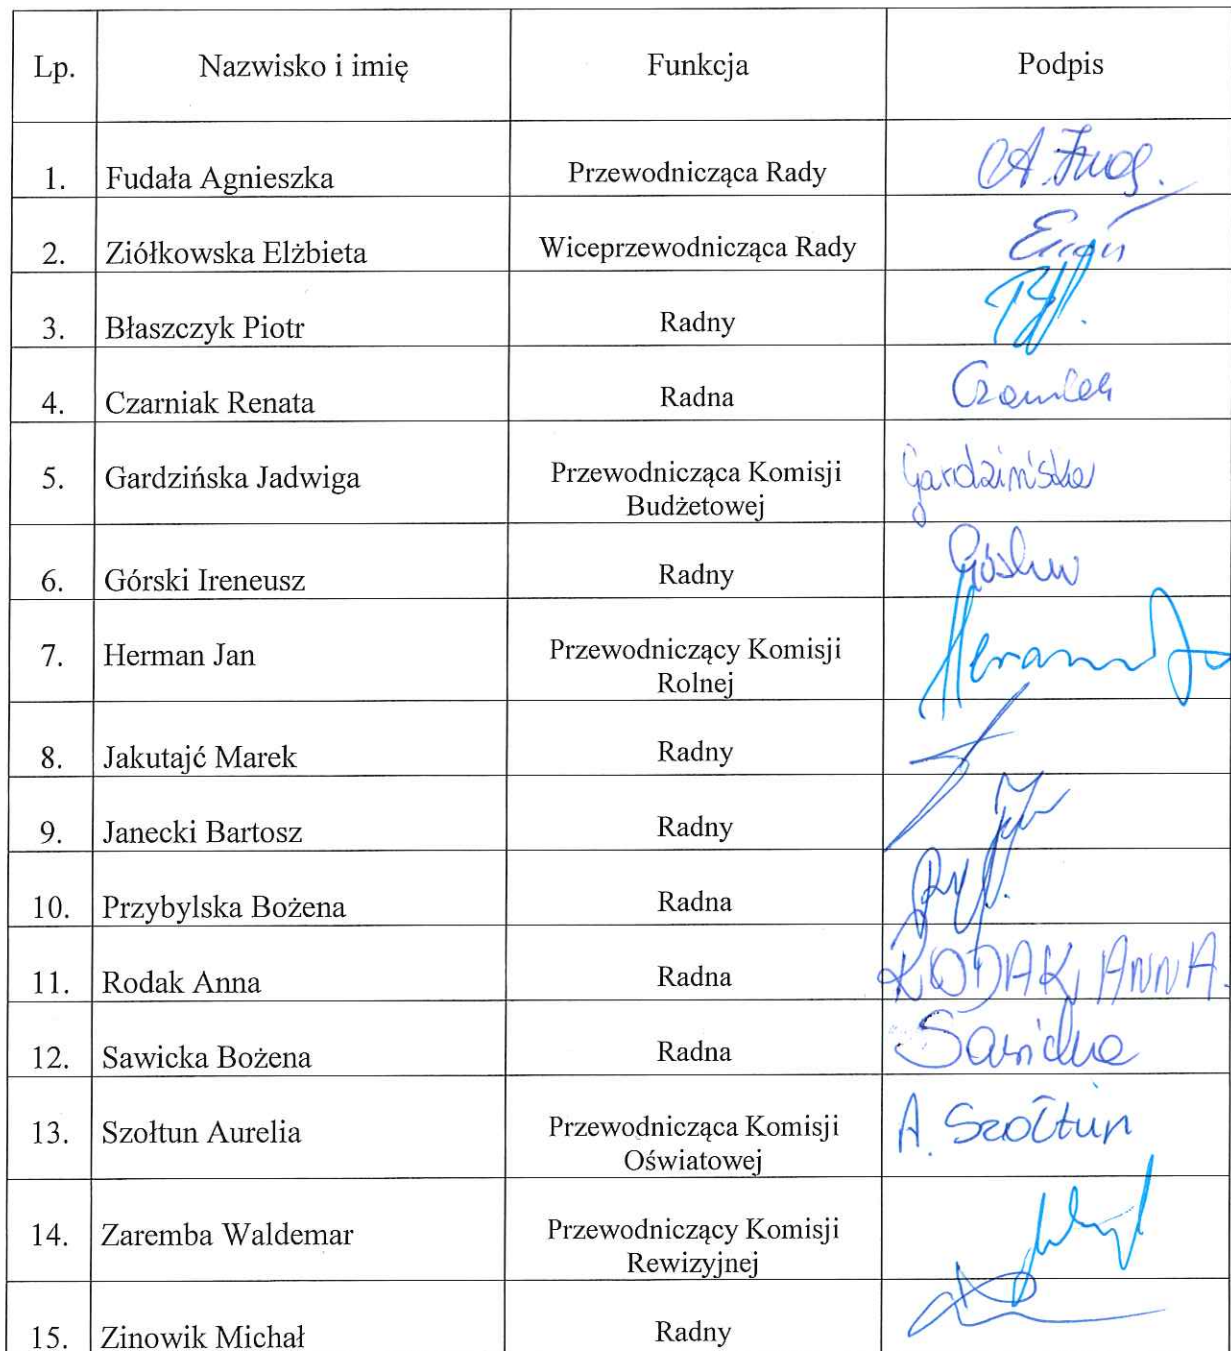 Lp. Nazwisko i imię Funkcja Podpis
1. Fudała Agnieszka Przewodnicząca Rady
2. Ziółkowska Elżbieta Wiceprzewodnicząca Rady
3. Błaszczyk Piotr Radny
4. Czarniak Renata Radna
5. Gardzińska Jadwiga Przewodnicząca Komisji Gardzińska
Budżetowej
6. Górski Ireneusz Radny
7. Herman Jan Przewodniczący Komisji
Rolnej
8. Jakutajć Marek Radny
9. Janecki Bartosz Radny
10. Przybylska Bożena Radna
11. Rodak Anna Radna RODAK ANNA.
12. Sawicka Bożena Radna Sawicka
13. Szołtun Aurelia Przewodnicząca Komisji A. Szołtun
Oświatowej
14. Zaremba Waldemar Przewodniczący Komisji
Rewizyjnej
15. Zinowik Michał Radny